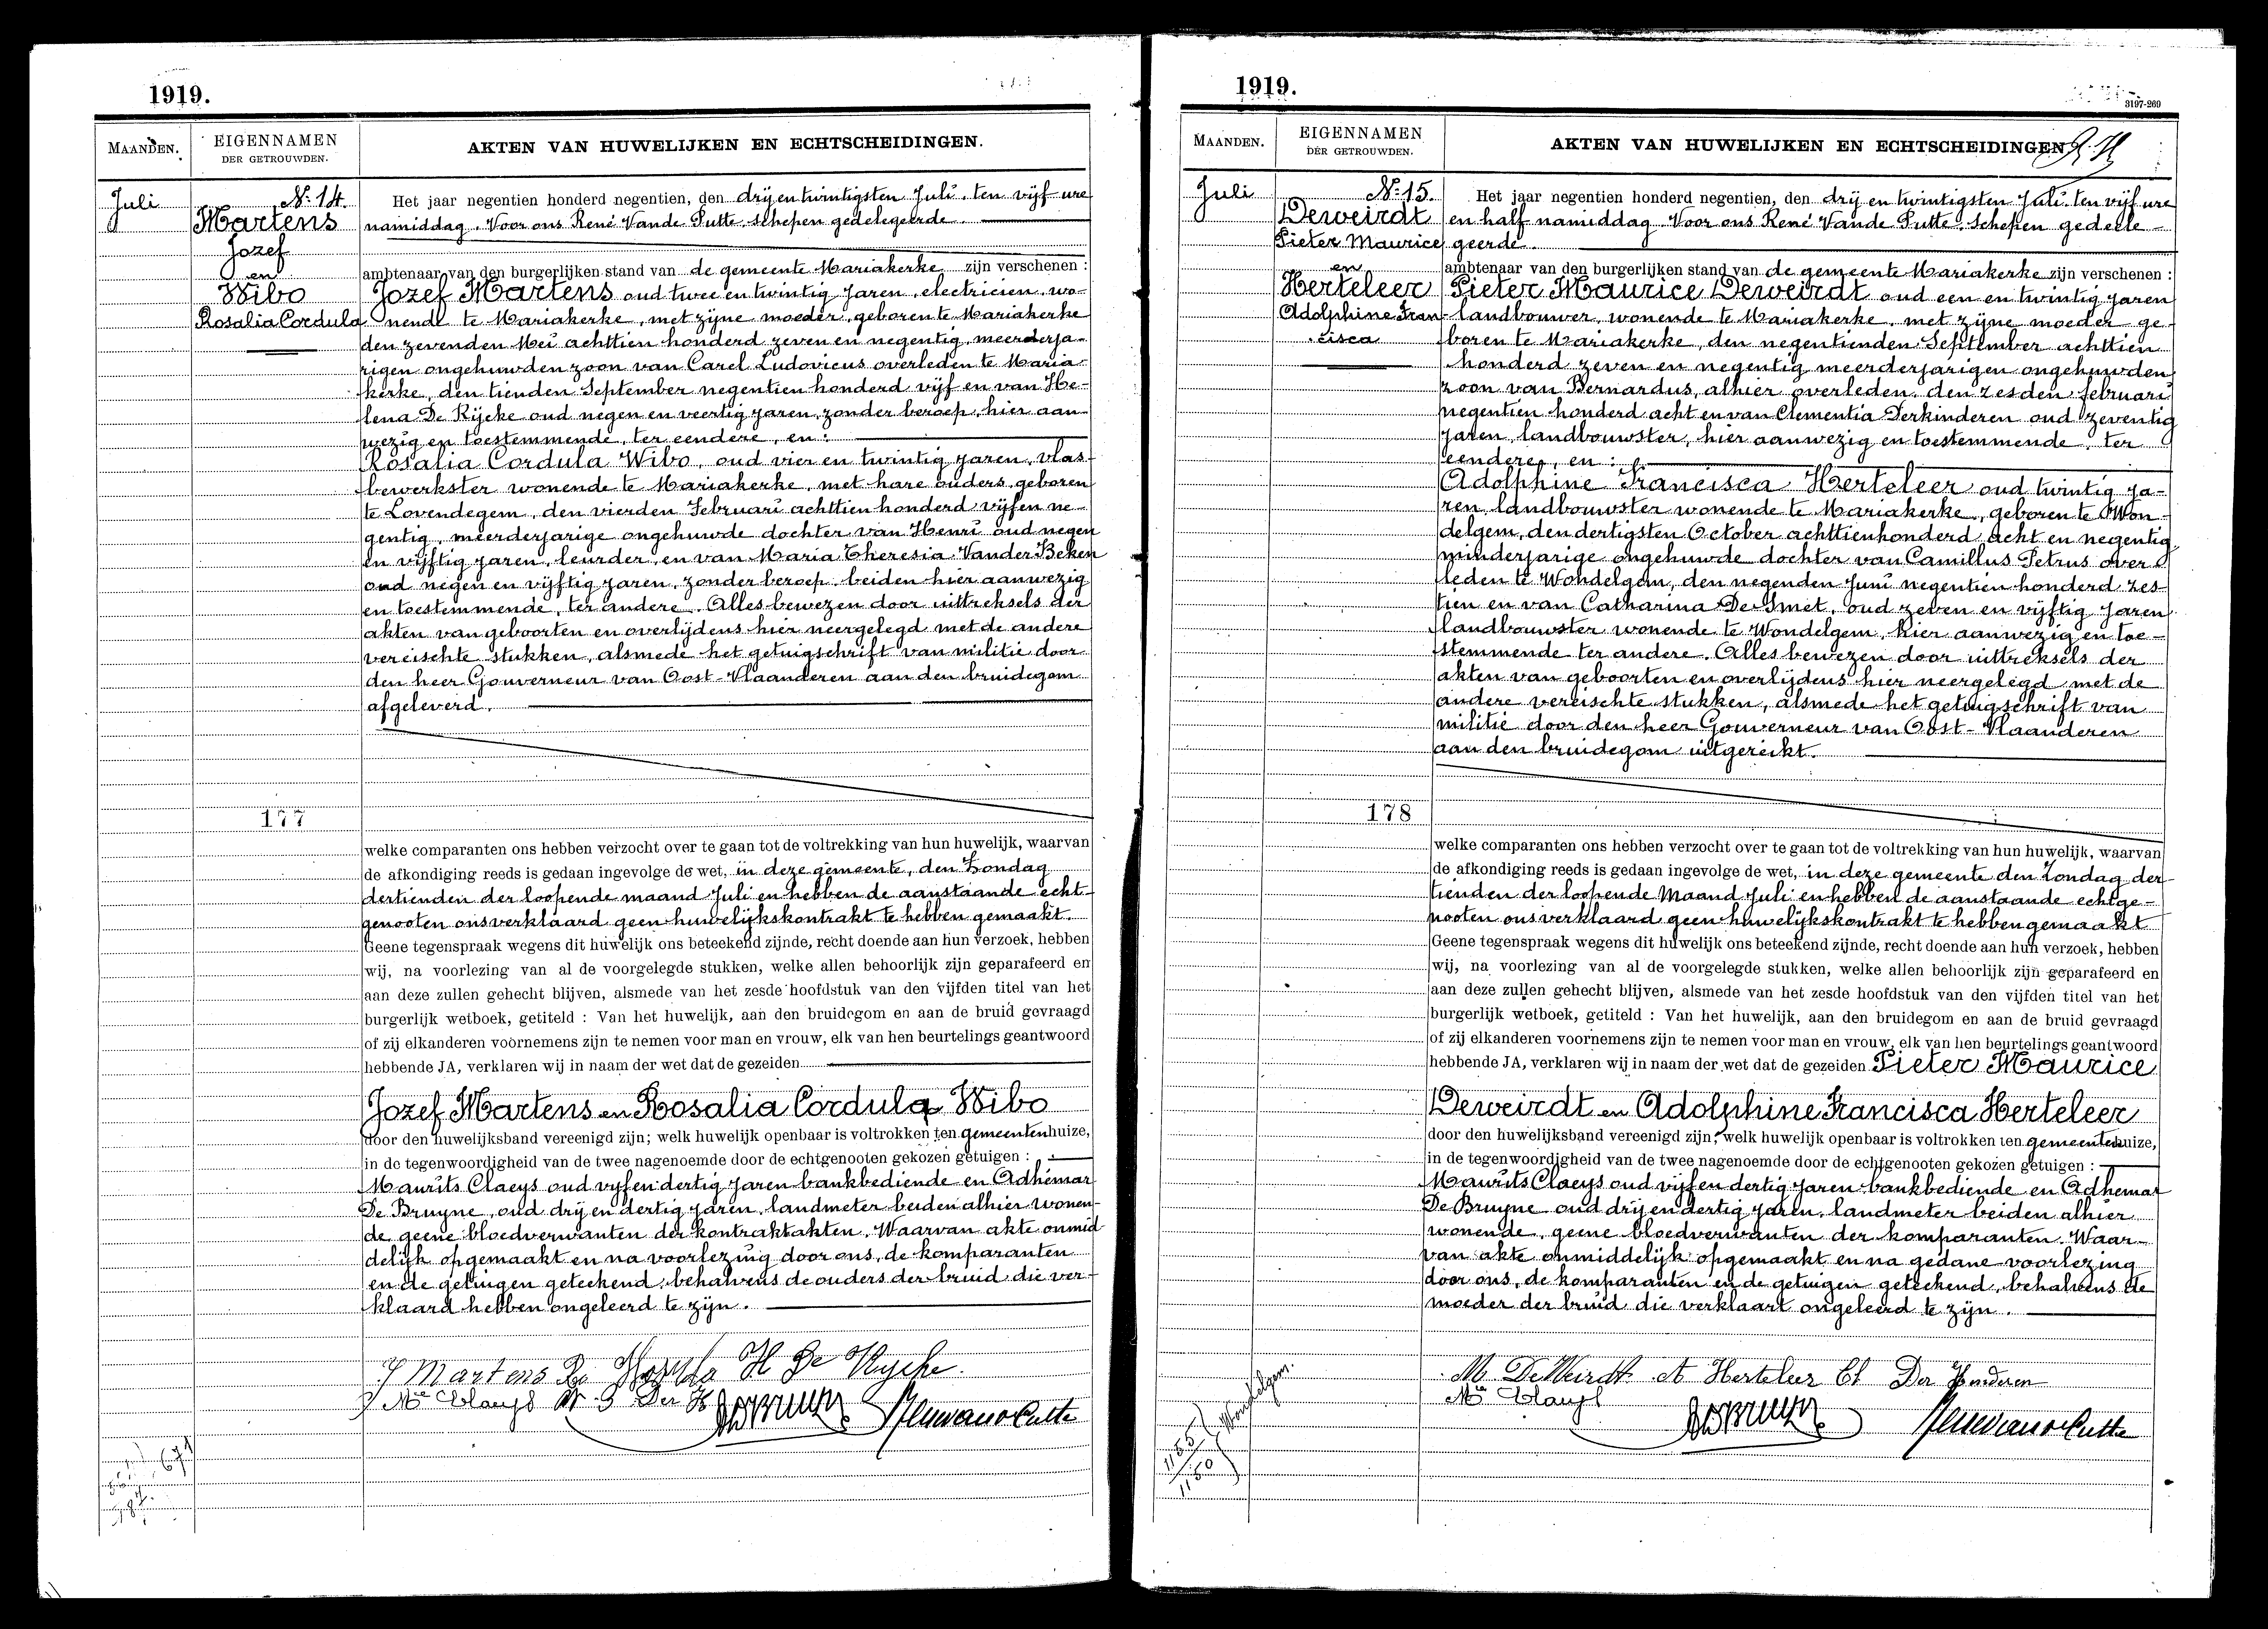 1919.
MAANDEN.
EIGENNAMEN
DER GETROUWDEN.
AKTEN VAN HUWELIJKEN EN ECHTSCHEIDINGEN.
Juli
No: 14.
Martens
Jozef
en
Wibo
Rosalia Cordula
Het jaar negentien honderd negentien, den drij en twintigsten Juli, ten vijf ure
namiddag. Voor ons René Vande Putte, schepen gedelegeerde
ambtenaar van den burgerlijken stand van de gemeente Mariakerke zijn verschenen :
Jozef Martens oud twee en twintig jaren, electricien, wo-
nende te Mariakerke, met zijne moeder, geboren te Mariakerke
den zevenden Mei achttien honderd zeven en negentig, meerderja-
rigen ongehuwden zoon van Carel Ludovicus overleden te Maria-
kerke, den tienden September negentien honderd vijf en van He-
lena De Rijcke oud negen en veertig jaren, zonder beroep, hier aan-
wezig en toestemmende, ter eendere, en :
Rosalia Cordula Wibo, oud vier en twintig jaren, vlas-
bewerkster wonende te Mariakerke, met hare ouders, geboren
te Lovendegem, den vierden Februari achttien honderd vijf en ne-
gentig, meerderjarige ongehuwde dochter van Henri oud negen
en vijftig jaren, leurder, en van Maria Theresia Vander Beken
oud negen en vijftig jaren, zonder beroep, beiden hier aanwezig
en toestemmende, ter andere. Alles bewezen door uittreksels der
akten van geboorten en overlijdens hier neergelegd met de andere
vereischte stukken, alsmede het getuigschrift van militie door
den heer Gouverneur van Oost-Vlaanderen aan den bruidegom
afgeleverd.
177
welke comparanten ons hebben verzocht over te gaan tot de voltrekking van hun huwelijk, waarvan
de afkondiging reeds is gedaan ingevolge de wet, in deze gemeente, den Zondag
dertienden der loopende maand Juli en hebben de aanstaande echt-
genooten ons verklaard geen huwelijkskontrakt te hebben gemaakt.
Geene tegenspraak wegens dit huwelijk ons beteekend zijnde, recht doende aan hun verzoek, hebben
wij, na voorlezing van al de voorgelegde stukken, welke allen behoorlijk zijn geparafeerd en
aan deze zullen gehecht blijven, alsmede van het zesde hoofdstuk van den vijfden titel van het
burgerlijk wetboek, getiteld : Van het huwelijk, aan den bruidegom en aan de bruid gevraagd
of zij elkanderen voornemens zijn te nemen voor man en vrouw, elk van hen beurtelings geantwoord
hebbende JA, verklaren wij in naam der wet dat de gezeiden
Jozef Martens en Rosalia Cordula Wibo
door den huwelijksband vereenigd zijn; welk huwelijk openbaar is voltrokken ten gemeentenhuize,
in de tegenwoordigheid van de twee nagenoemde door de echtgenooten gekozen getuigen :
Maurits Claeys oud vijf en dertig jaren bankbediende en Adhémar
De Bruyne, oud drij en dertig jaren, landmeter beiden alhier wonen-
de geene bloedverwanten der kontraktakten. Waarvan akte onmid-
delijk opgemaakt en na voorlezing door ons, de komparanten
en de getuigen geteekend, behalvens de ouders der bruid die ver-
klaard hebben ongeleerd te zijn.
J Martens H De Rycke
Mce Claeys
1919.
3197-269
MAANDEN.
EIGENNAMEN
DER GETROUWDEN.
AKTEN VAN HUWELIJKEN EN ECHTSCHEIDINGEN
Juli
No: 15.
Deweirdt
Pieter Maurice
en
Herteleer
Adolphine Fran-
cisca
Het jaar negentien honderd negentien, den drij en twintigsten Juli. ten vijf ure
en half namiddag. Voor ons René Vande Putte. Schepen gedele-
geerde
ambtenaar van den burgerlijken stand van de gemeente Mariakerke zijn verschenen :
Pieter Maurice Deweirdt oud een en twintig jaren
landbouwer, wonende te Mariakerke, met zijne moeder ge-
boren te Mariakerke, den negentienden September achttien
honderd zeven en negentig meerderjarigen ongehuwden
zoon van Bernardus, alhier overleden, den zesden februari
negentien honderd acht en van Clementia Derkinderen oud zeventig
jaren, landbouwster, hier aanwezig en toestemmende, ter
eendere, en :
Adolphine Francisca Herteleer oud twintig ja-
ren, landbouwster wonende te Mariakerke, geboren te Won-
delgem, den dertigsten October achttienhonderd acht en negentig
minderjarige ongehuwde dochter van Camillus Petrus over-
leden te Wondelgem, den negenden Juni negentien honderd zes-
tien en van Catharina De Smet, oud zeven en vijftig jaren
landbouwster wonende te Wondelgem, hier aanwezig en toe-
stemmende ter andere. Alles bewezen door uittreksels der
akten van geboorten en overlijdens hier neergelegd met de
andere vereischte stukken, alsmede het getuigschrift van
militie door den heer Gouverneur van Oost-Vlaanderen
aan den bruidegom uitgereikt.
178
welke comparanten ons hebben verzocht over te gaan tot de voltrekking van hun huwelijk, waarvan
de afkondiging reeds is gedaan ingevolge de wet, in deze gemeente den Zondag der-
tienden der loopende Maand Juli en hebben de aanstaande echtge-
nooten ons verklaard geen huwelijkskontrakt te hebben gemaakt
Geene tegenspraak wegens dit huwelijk ons beteekend zijnde, recht doende aan hun verzoek, hebben
wij, na voorlezing van al de voorgelegde stukken, welke allen behoorlijk zijn geparafeerd en
aan deze zullen gehecht blijven, alsmede van het zesde hoofdstuk van den vijfden titel van het
burgerlijk wetboek, getiteld : Van het huwelijk, aan den bruidegom en aan de bruid gevraagd
of zij elkanderen voornemens zijn te nemen voor man en vrouw, elk van hen beurtelings geantwoord
hebbende JA, verklaren wij in naam der wet dat de gezeiden Pieter Maurice
Deweirdt en Adolphine Francisca Herteleer
door den huwelijksband vereenigd zijn; welk huwelijk openbaar is voltrokken ten gemeentenhuize,
in de tegenwoordigheid van de twee nagenoemde door de echtgenooten gekozen getuigen :
Maurits Claeys oud vijf en dertig jaren bankbediende en Adhemar
De Bruyne oud drij en dertig jaren, landmeter beiden alhier
wonende, geene bloedverwanten der komparanten. Waar-
van akte onmiddelijk opgemaakt en na gedane voorlezing
door ons, de komparanten en de getuigen geteekend, behalvens de
moeder der bruid die verklaart ongeleerd te zijn.
M DeWeirdt A Herteleer Cl Der Kenderen
Mce Claeys
Wondelgem.
1155
1150